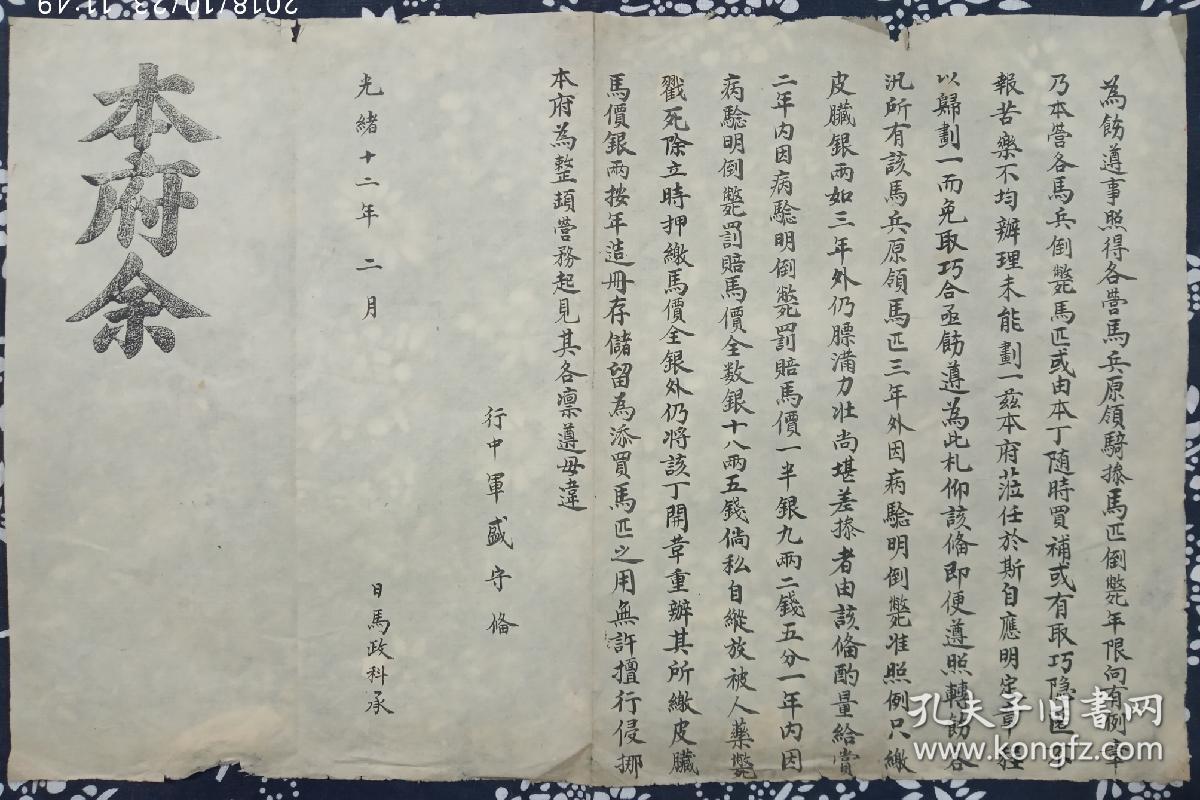 為飭遵事照得各營馬兵原領騎操馬匹倒斃年限向有例章
乃本營各馬兵倒斃馬匹或由本丁隨時買補或有取巧隱匿
報苦樂不均辦理未能劃一茲本府蒞任於斯自應明定章程
以歸劃一而免取巧合亟飭遵為此札仰該俻即便遵照轉飭各
汛所有該馬兵原領馬匹三年外因病驗明倒斃准照例只繳
皮臟銀兩如三年外仍膘滿力壯尚堪差操者由該俻酌量給賞
二年內因病驗明倒斃罰賠馬價一半銀九兩二錢五分一年內因
病驗明倒斃罰賠馬價全数銀十八兩五錢倘私自縱放被人藥斃
戳死除立時押繳馬價全銀外仍將該丁開革重辦其所繳皮臟
馬價銀兩按年造冊存儲留為添買馬匹之用無許擅行侵挪
本府為整頓營務起見其各凛遵毋違
行中軍盛守俻
光緒十二年二月
日馬政科承
本府余
孔夫子旧书网
www.kongfz.com
2018/10/23 11:49